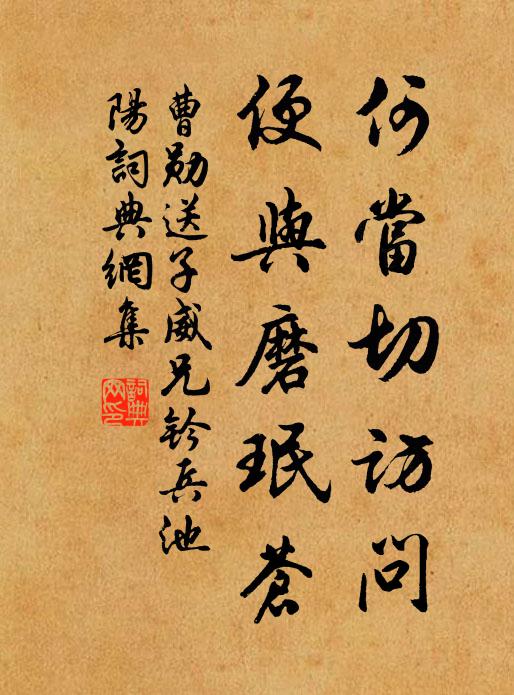 何當切訪問
便與磨珉蒼
曹勛送子威兄鈐兵池
陽詞典網集
詞典網印